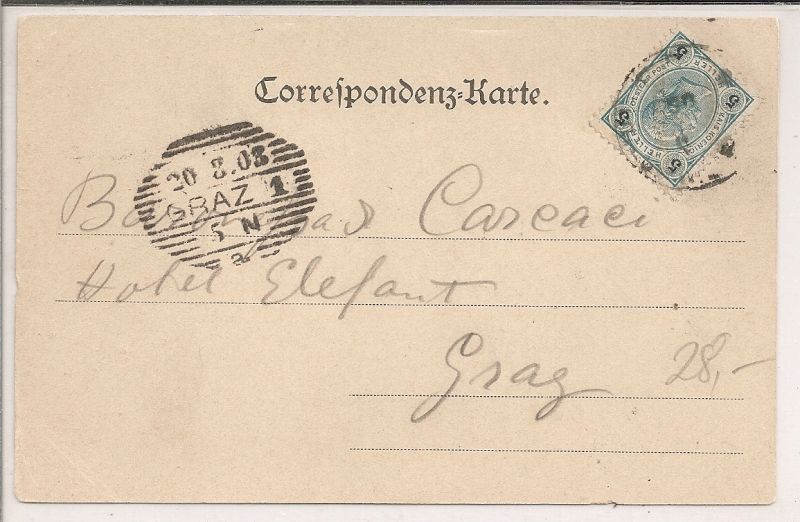 Correspondenz-Karte.
5 5 5 5
HELLER HELLER
20 8.03
GRAZ 1
5 N
Carcaci
Hotel Elefant
Graz 28,-